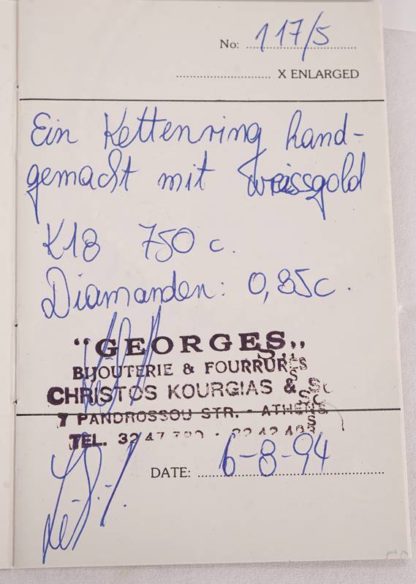 No: 117/5
X ENLARGED
Ein Kettenring hand-
gemacht mit Weissgold
K18 750 c.
Diamanden: 0,85c.
"GEORGES"
BIJOUTERIE & FOURRURES
CHRISTOS KOURGIAS &
7 PANDROSSOU STR. - ATHENS
TEL. 32 47
DATE: 6-8-94